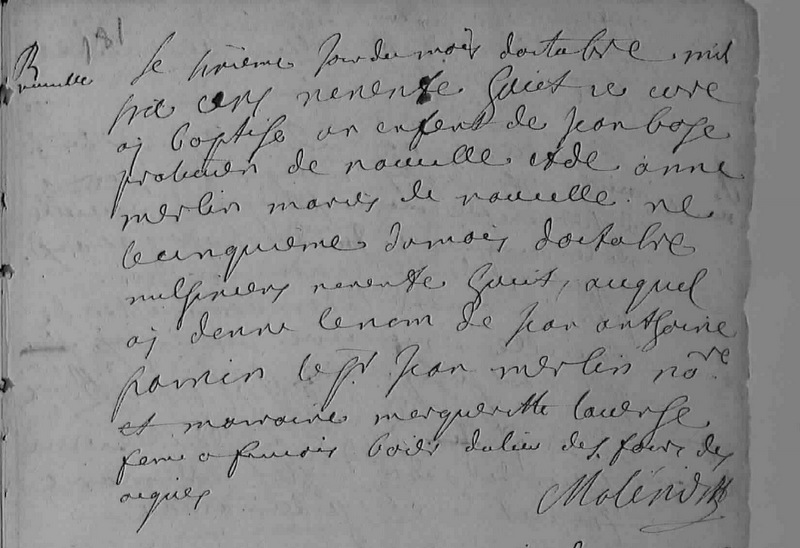 181
B
nouvelle
Le sixieme jour du mois doctabre mil
six cens nenente huict ie cure
aj baptise un enfent de jean boze
probaties de nouvelle et de anne
merlin maries de nouvelle ne
le cinquieme du mois doctabre
mil six cens nenente huict, auquel
aj donne le nom de jean anthoine
parrein le sr jean merlin nore
et marraine margueritte lauerse
feme a francois boies du lieu de st fons des
aigues